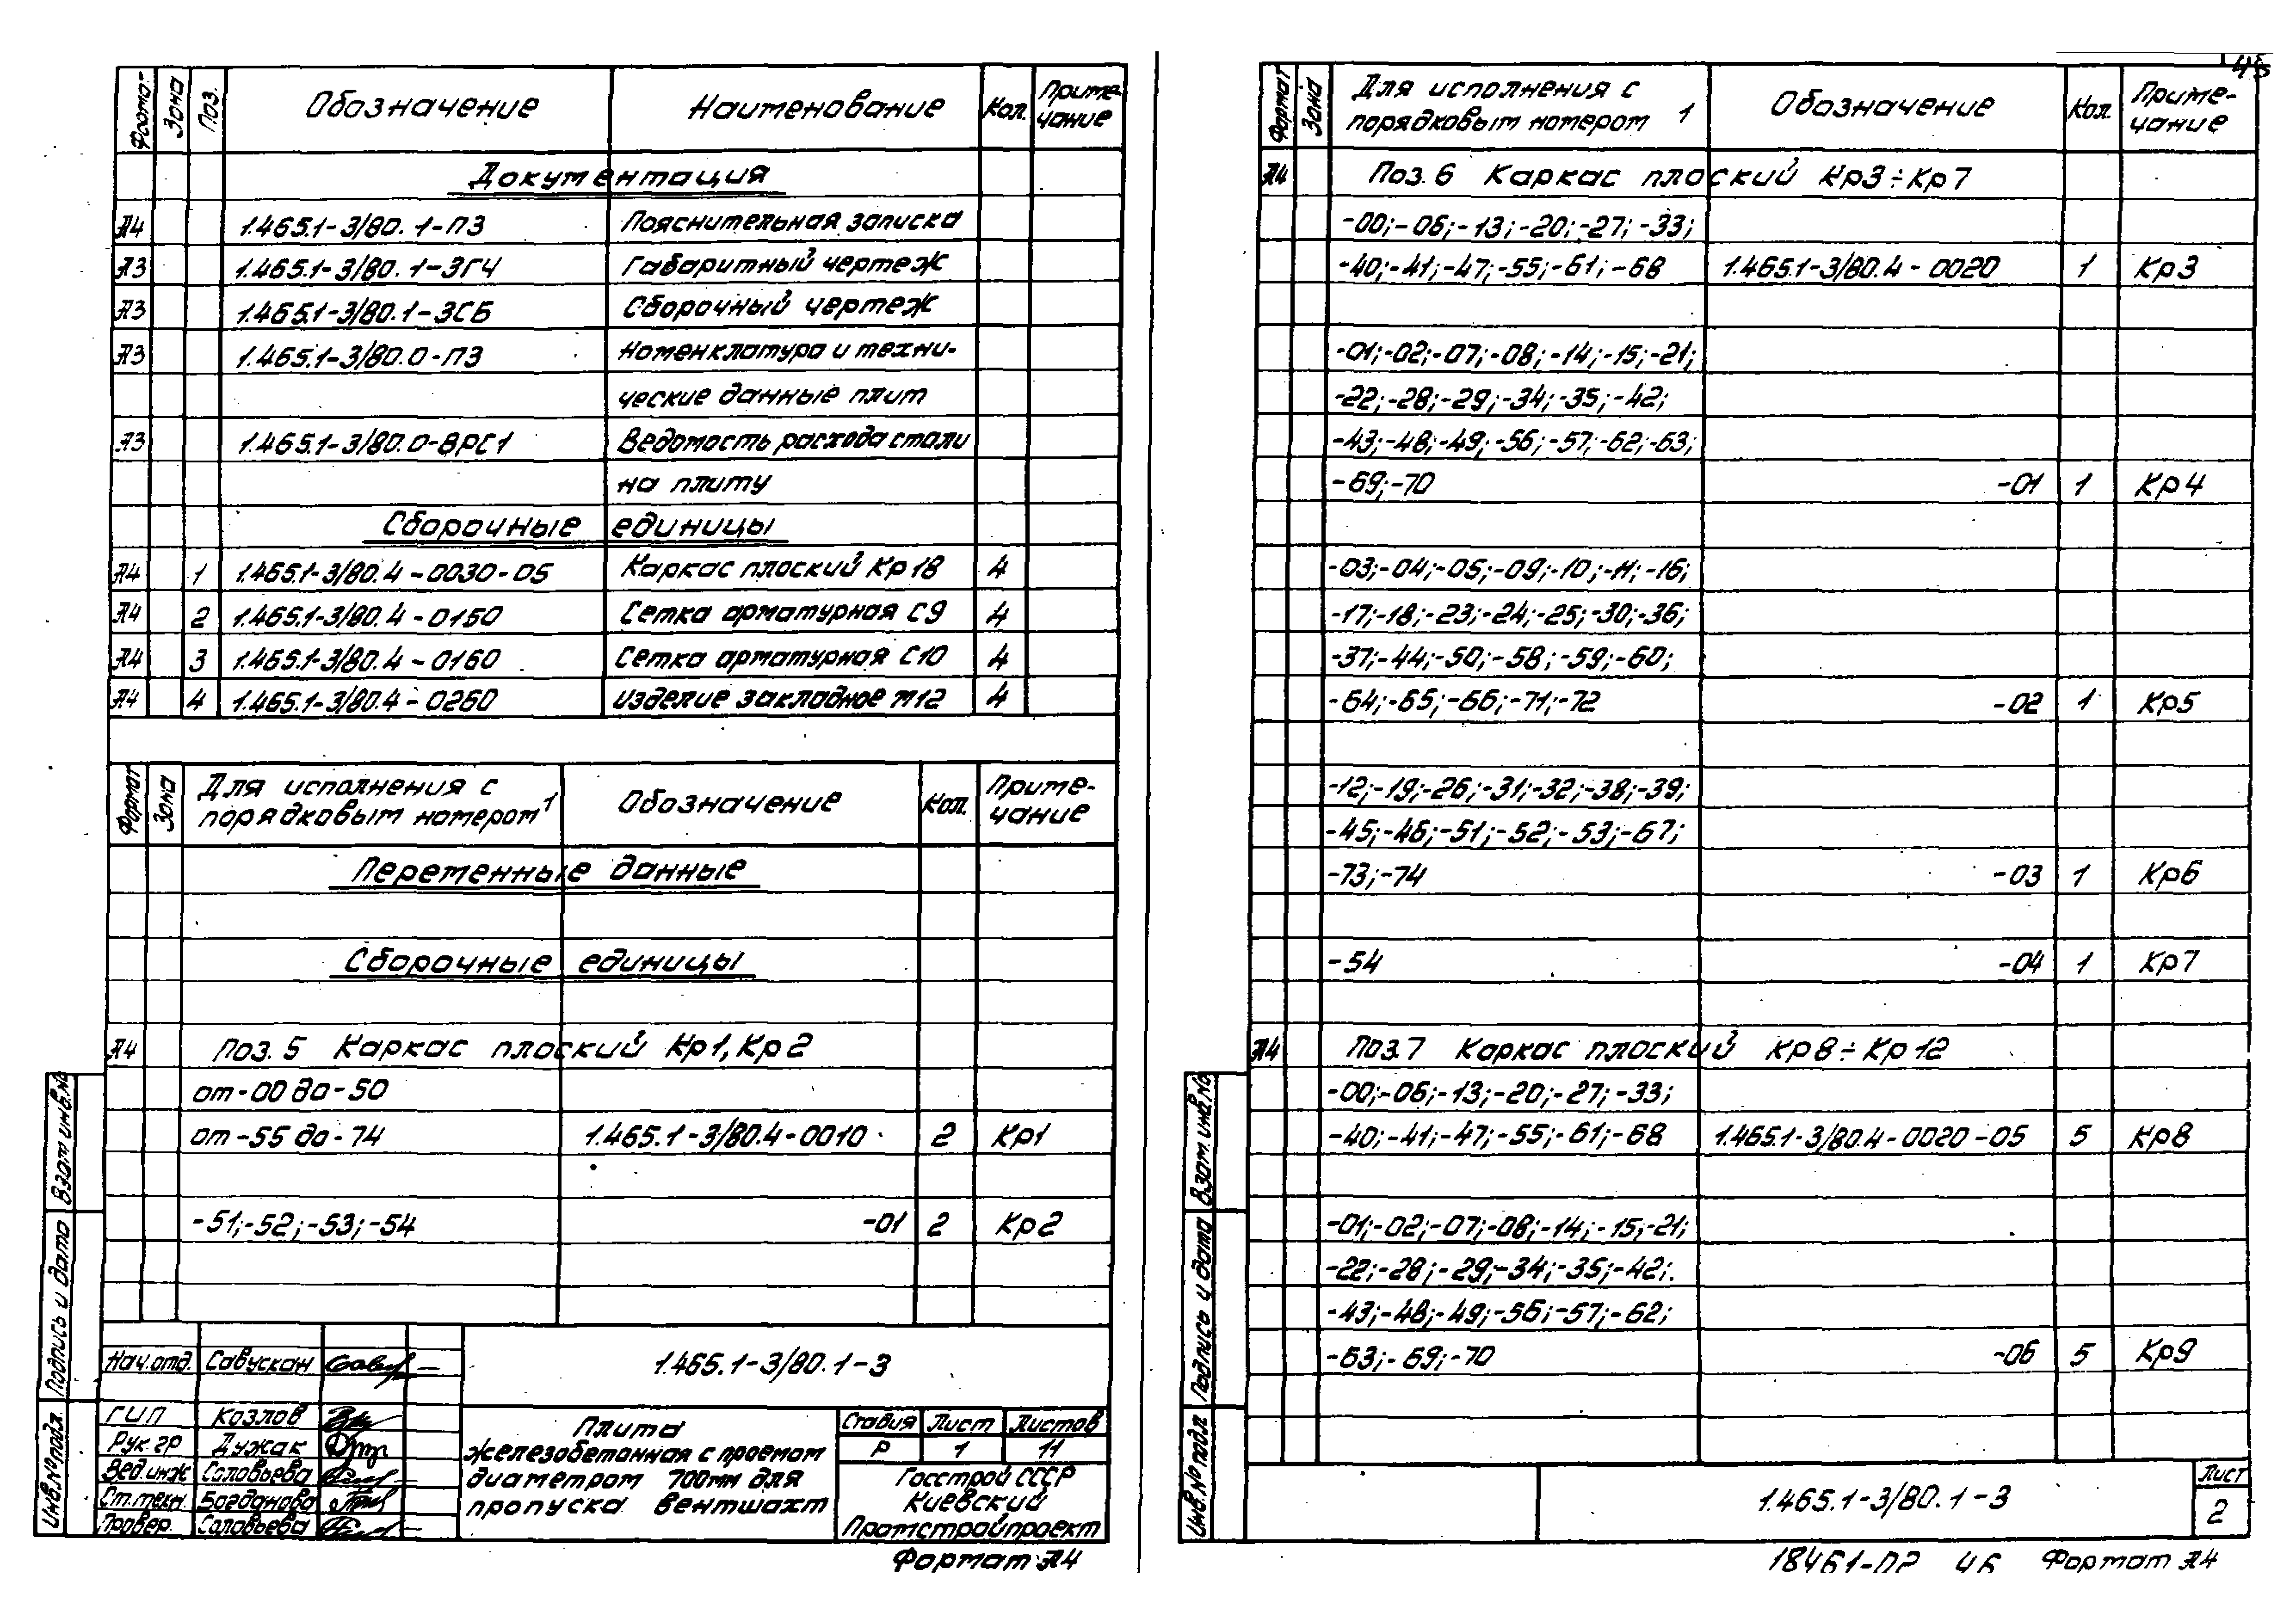 Формат Зона Поз. Обозначение Наименование Кол. Примечание
Документация
А4 1.465.1-3/80. 1-ПЗ Пояснительная записка
А3 1.465.1-3/80. 1-3ГЧ Габаритный чертеж
А3 1.465.1-3/80. 1-3СБ Сборочный чертеж
А3 1.465.1-3/80.0-ПЗ Номенклатура и техни-
ческие данные плит
А3 1.465.1-3/80.0-ВРС1 Ведомость расхода стали
на плиту
Сборочные единицы
А4 1 1.465.1-3/80.4-0030-05 Каркас плоский Кр18 4
А4 2 1.465.1-3/80.4-0150 Сетка арматурная С9 4
А4 3 1.465.1-3/80.4-0160 Сетка арматурная С10 4
А4 4 1.465.1-3/80.4-0260 Изделие закладное М12 4
Формат Зона Для исполнения с Обозначение Кол. Приме-
порядковым номером 1 чание
Переменные данные
Сборочные единицы
А4 Поз. 5 Каркас плоский Кр1, Кр2
от-00 до-50
от-55 до-74 1.465.1-3/80.4-0010 2 Кр1
-51;-52;-53;-54 -01 2 Кр2
Взам инв.№
Подпись и дата
Инв.№ подл.
Нач.отд. Савускан
ГИП Козлов
Рук.гр Дужак
Вед.инж Соловьева
Ст.техн. Богданова
Провер. Соловьева
1.465.1-3/80.1-3
Плита
железобетонная с проемом
диаметром 700мм для
пропуска вентшахт
Стадия Лист Листов
Р 1 11
Госстрой СССР
Киевский
Промстройпроект
Формат А4
Формат Зона Для исполнения с Обозначение Кол. Приме-
порядковым номером 1 чание
А4 Поз. 6 Каркас плоский Кр3÷Кр7
-00;-06;-13;-20;-27;-33;
-40;-41;-47;-55;-61;-68 1.465.1-3/80.4-0020 1 Кр3
-01;-02;-07;-08;-14;-15;-21;
-22;-28;-29;-34;-35;-42;
-43;-48;-49;-56;-57;-62;-63;
-69;-70 -01 1 Кр4
-03;-04;-05;-09;-10;-11;-16;
-17;-18;-23;-24;-25;-30;-36;
-37;-44;-50;-58;-59;-60;
-64;-65;-66;-71;-72 -02 1 Кр5
-12;-19;-26;-31;-32;-38;-39;
-45;-46;-51;-52;-53;-67;
-73;-74 -03 1 Кр6
-54 -04 1 Кр7
А4 Поз.7 Каркас плоский Кр8÷Кр12
-00;-06;-13;-20;-27;-33;
-40;-41;-47;-55;-61;-68 1.465.1-3/80.4-0020-05 5 Кр8
-01;-02;-07;-08;-14;-15;-21;
-22;-28;-29;-34;-35;-42;
-43;-48;-49;-56;-57;-62;
-63;-69;-70 -06 5 Кр9
Взам. инв.№
Подпись и дата
Инв.№ подл
1.465.1-3/80.1-3
Лист
2
18461-02 46 Формат А4